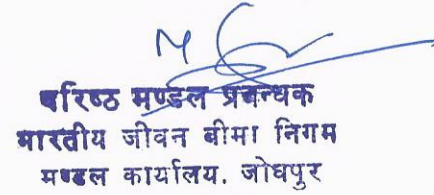 वरिष्ठ मण्डल प्रबन्धक
भारतीय जीवन बीमा निगम
मण्डल कार्यालय. जोधपुर